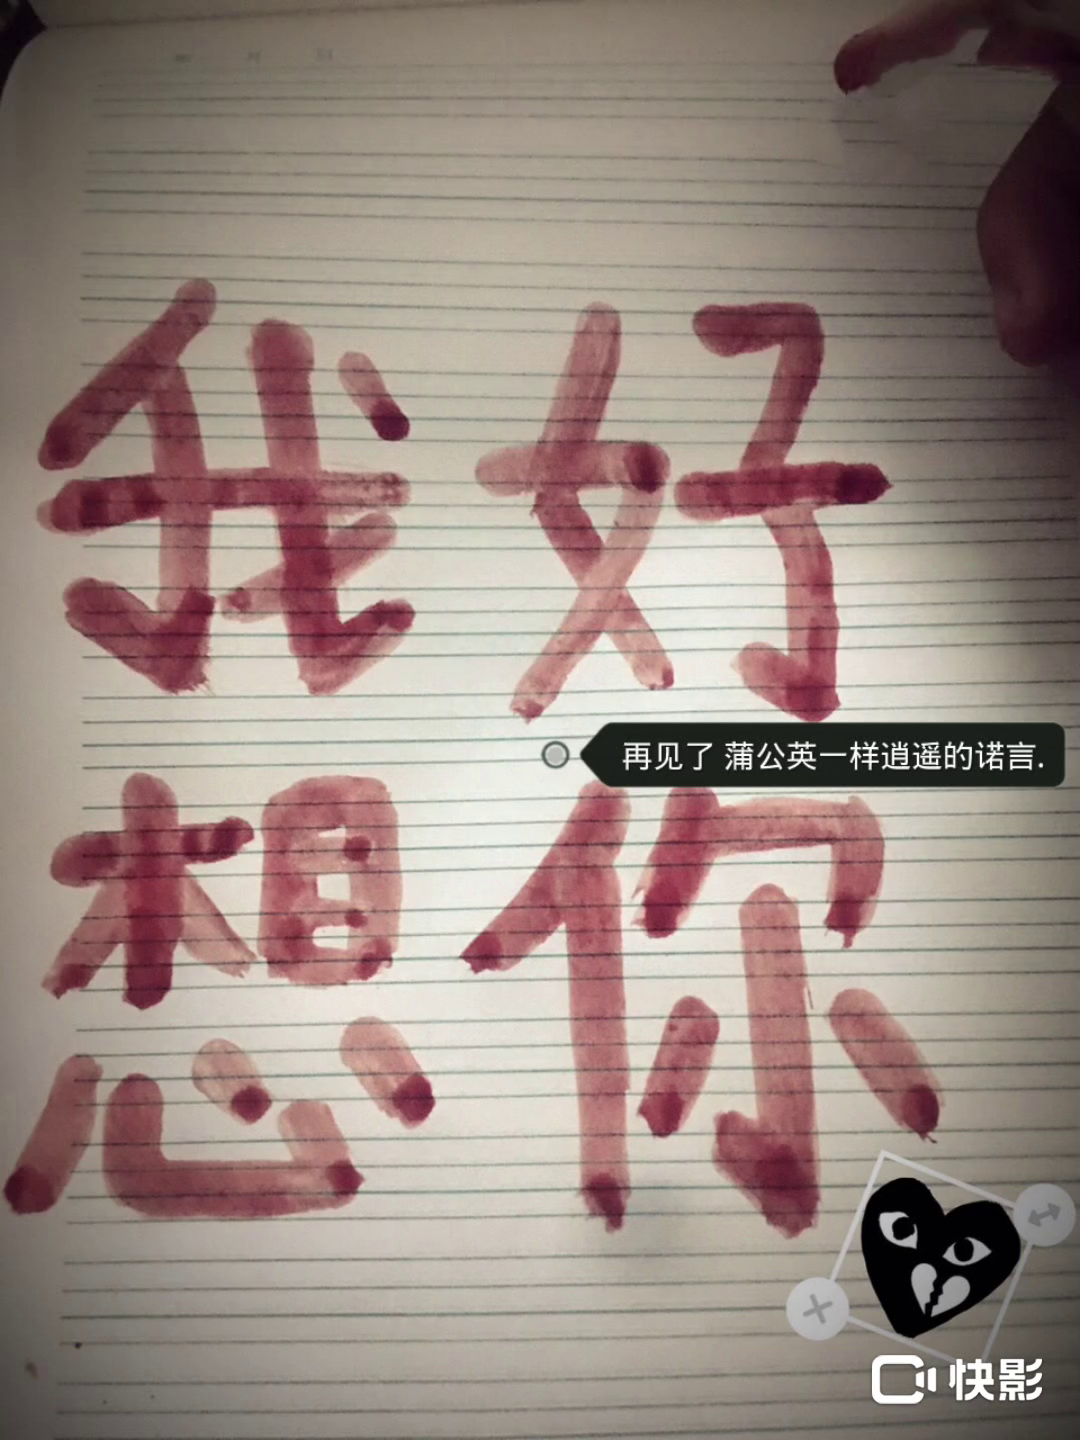 我好
再见了 蒲公英一样逍遥的诺言.
想你
快影